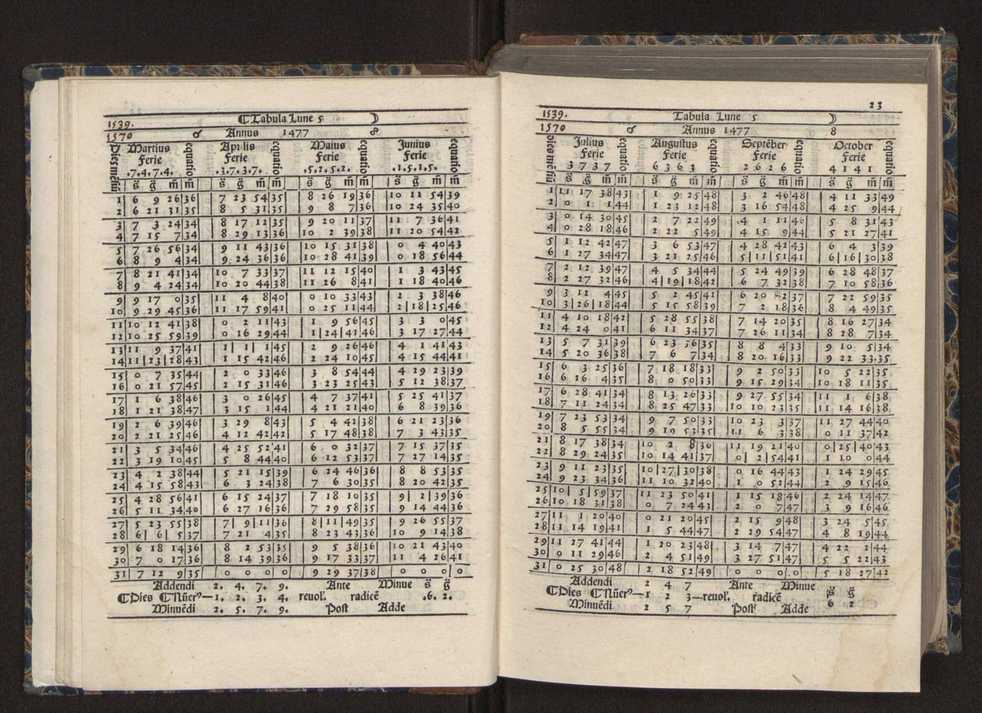 1539. ⁋Tabula Lune 5 ☽
1570 ♂ Annus 1477 8
Dies mēsiū Martius equatio Aprilis equatio Maius equatio Junius equatio
Ferie Ferie Ferie Ferie
.7.4.7.4. .3.7.3.7. .5.2.5.2. .1.5.1.5.
s̄ ḡ m̄ m̄ s̄ ḡ m̄ m̄ s̄ ḡ m̄ m̄ s̄ ḡ m̄ m̄
1 6 9 26 36 7 23 54 35 8 26 19 36 10 11 54 39
2 6 21 31 35 8 5 31 35 9 8 7 36 10 24 35 40
3 7 3 24 34 8 17 11 35 9 20 11 37 11 7 36 41
4 7 15 7 34 8 29 13 36 10 2 39 38 11 20 54 42
5 7 26 56 34 9 11 43 36 10 15 31 38 0 4 40 43
6 8 9 4 34 9 24 36 36 10 28 41 39 0 18 56 44
7 8 21 41 34 10 7 33 37 11 12 15 40 1 3 43 45
8 9 4 24 34 10 20 44 38 11 26 8 41 1 18 40 46
9 9 17 0 35 11 4 8 40 0 10 33 43 2 3 38 46
10 9 29 45 36 11 17 59 41 0 25 11 44 2 18 25 46
11 10 12 41 38 0 2 11 43 1 9 56 45 3 3 0 45
12 10 25 59 39 0 16 29 44 1 24 41 46 3 17 27 44
13 11 9 37 41 1 1 1 45 2 9 26 46 4 1 41 43
14 11 23 58 43 1 15 42 46 2 24 10 45 4 15 44 41
15 0 7 35 44 2 0 33 46 3 8 54 44 4 29 23 39
16 0 21 57 45 2 15 31 46 3 23 25 43 5 12 38 37
17 1 6 38 46 3 0 26 45 4 7 37 41 5 25 41 37
18 1 21 38 47 3 15 1 44 4 21 21 40 6 8 39 36
19 2 6 39 46 3 29 8 43 5 4 42 38 6 21 23 36
20 2 21 25 46 4 12 42 42 5 17 48 38 7 3 43 35
21 3 5 34 46 4 25 52 41 6 0 32 37 7 15 37 35
22 3 19 10 45 5 8 44 40 6 12 53 37 7 27 14 35
23 4 2 38 44 5 21 15 39 6 24 46 36 8 8 53 35
24 4 15 58 43 6 3 24 38 7 6 30 35 8 20 42 35
25 4 28 56 41 6 15 24 37 7 18 10 35 9 2 39 36
26 5 11 34 40 6 27 16 36 7 29 58 35 9 14 44 36
27 5 23 55 38 7 9 11 36 8 11 49 35 9 26 55 37
28 6 6 5 37 7 21 4 35 8 23 43 36 10 9 14 38
29 6 18 14 36 8 2 53 35 9 5 38 36 10 21 43 40
30 7 0 17 36 8 14 39 36 9 17 33 37 11 4 26 41
31 7 12 9 35 0 0 0 9 29 37 38 0 0 0 0
Addendi 2. 4. 7. 9. Ante Minue s̄ ḡ
⁋Dies ⁋Nūer⁹— 1. 2. 3. 4. reuol'. radicē .6. 2.
Minuēdi 2. 5. 7. 9. Post Adde
23
1539. Tabula Lune 5 ☽
1570 ♂ Annus 1477 8
Dies mēsiū Julius equatio Augustus equatio Septēber equatio October equatio
Ferie Ferie Ferie Ferie
3 7 3 7 6 3 6 3 2 6 2 6 4 1 4 1
s̄ ḡ m̄ m̄ s̄ ḡ m̄ m̄ s̄ ḡ m̄ m̄ s̄ ḡ m̄ m̄
1 11 17 38 43 1 9 25 48 3 2 46 48 4 11 33 49
2 0 1 1 44 1 23 12 48 3 16 54 48 4 25 9 44
3 0 14 30 45 2 7 22 49 4 1 11 46 5 8 31 43
4 0 28 18 46 2 22 5 49 4 15 9 44 5 21 27 41
5 1 12 42 47 3 6 53 47 4 28 41 43 6 4 3 39
6 1 27 34 47 3 21 25 46 5 11 51 41 6 16 30 38
7 2 12 39 47 4 5 34 44 5 24 49 39 6 28 48 37
8 2 27 32 46 4 19 18 42 6 7 32 38 7 10 58 36
9 3 12 4 45 5 2 45 41 6 20 2 37 7 22 59 35
10 3 26 18 44 5 15 58 39 7 2 18 36 8 4 49 35
11 4 10 18 42 5 28 55 38 7 14 20 35 8 16 27 34
12 4 24 0 41 6 11 34 37 7 26 11 34 8 28 7 34
13 5 7 31 39 6 23 56 35 8 8 4 33 9 10 5 34
14 5 20 36 38 7 6 7 34 8 20 16 33 9 22 33 35
15 6 3 25 36 7 18 18 33 9 2 50 33 10 5 22 35
16 6 16 4 35 8 0 50 33 9 15 29 34 10 18 11 35
17 6 28 41 34 8 13 26 33 9 27 55 34 11 1 6 38
18 7 11 24 34 8 25 47 33 10 10 23 35 11 14 16 38
19 7 23 53 34 9 7 50 33 10 23 3 37 11 27 44 40
20 8 5 55 34 9 19 53 35 11 6 3 38 0 11 37 42
21 8 17 38 34 10 2 8 36 11 19 21 40 0 25 40 43
22 8 29 24 35 10 14 41 37 0 2 54 41 1 10 0 44
23 9 11 23 35 10 27 30 38 0 16 44 43 1 24 29 45
24 9 23 34 36 11 10 32 40 1 0 52 44 2 9 15 46
25 10 5 59 37 11 23 50 41 1 15 18 46 2 24 14 47
26 10 18 31 38 0 7 24 43 2 0 7 47 3 9 16 46
27 11 1 20 40 0 21 20 45 2 15 9 48 3 24 5 45
28 11 14 19 41 1 5 44 47 2 29 54 47 4 8 19 44
29 11 27 41 44 1 20 23 48 3 14 7 47 4 22 2 44
30 0 11 29 46 2 4 51 49 3 27 51 47 5 5 22 43
31 0 25 30 48 2 18 52 49 0 0 0 0 5 18 27 42
Addendi 2 4 7 Ante Minue s̄ ḡ
⁋Dies ⁋Nūer⁹— 1 2 3—reuol. radicē
Minuēdi 2 5 7 Post Adde 6 2